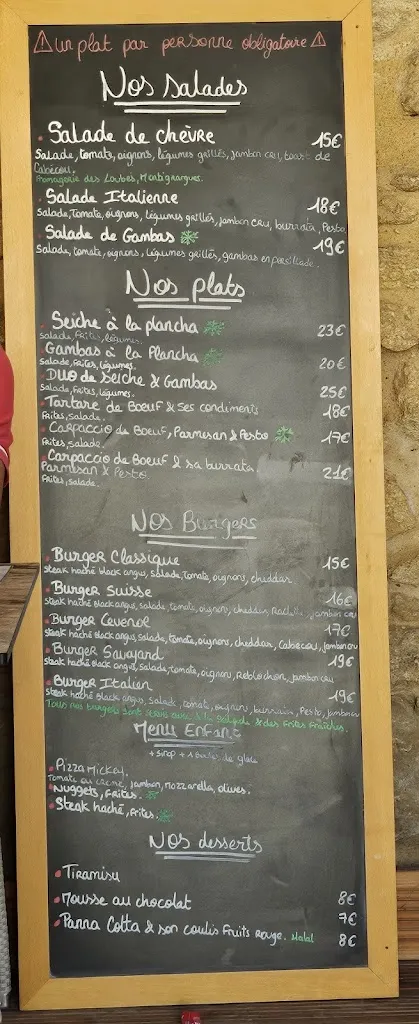 ⚠ un plat par personne obligatoire ⚠
Nos salades
Salade de chèvre 15€
Salade, tomate, oignons, légumes grillés, jambon cru, toast de
Cabécou.
Fromagerie des Loubes, Montignargues.
Salade Italienne 18€
Salade, Tomate, oignons, légumes grillés, jambon cru, burrata, Pesto
Salade de Gambas 19€
Salade, tomate, oignons, légumes grillés, gambas en persillade.
Nos plats
Seiche à la plancha 23€
Salade, frites, légumes.
Gambas à la Plancha 20€
Salade, frites, légumes.
Duo de seiche & Gambas 25€
Salade, frites, légumes.
Tartare de Boeuf & ses condiments 18€
Frites, salade.
Carpaccio de Boeuf, Parmesan & Pesto 17€
Frites, salade.
Carpaccio de Boeuf & sa burrata, 21€
Parmesan & Pesto
Frites, salade.
Nos Burgers
Burger Classique 15€
Steak haché black angus, salade, Tomate, oignons, cheddar
Burger Suisse 16€
Steak haché Black angus, salade, tomate, oignons, cheddar, jambon cru
Burger Cevenol 17€
Steak haché Black angus, salade, tomate, oignons, cheddar, Cabecou, jambon cru
Burger Savoyard 19€
Steak haché Black angus, salade, tomate, oignons, Reblochon, jambon cru
Burger Italien 19€
Steak haché Black angus, salade, tomate, oignons, burrata, Pesto, jambon cru
Tous nos burgers sont servis avec de la Salade & des Frites Fraîches.
Menu Enfant
+ sirop + 1 boule de glace
Pizza Mickey.
Tomate ou crème, jambon, mozzarella, olives.
Nuggets, frites.
Steak haché, frites.
Nos desserts
Tiramisu 8€
Mousse au chocolat 7€
Panna Cotta & son coulis Fruits Rouge. Halal 8€